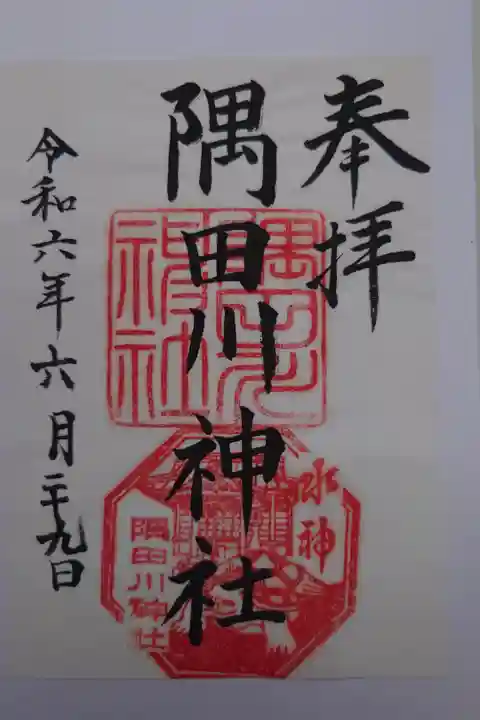 奉拝
隅田川神社
令和六年六月二十九日
隅田川神社
水神
隅田川神社